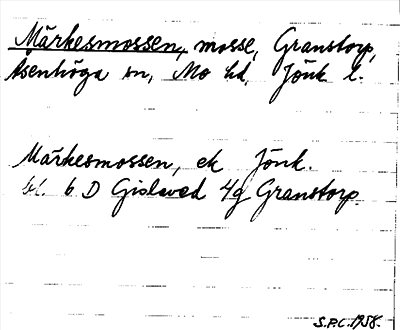 Märkesmossen, mosse, Granstorp,
Åsenhöga sn, Mo hd, Jönk l.
Märkesmossen, ek Jönk.
bl. 6 D Gislaved 4g Granstorp.
S.P.C. 1958.